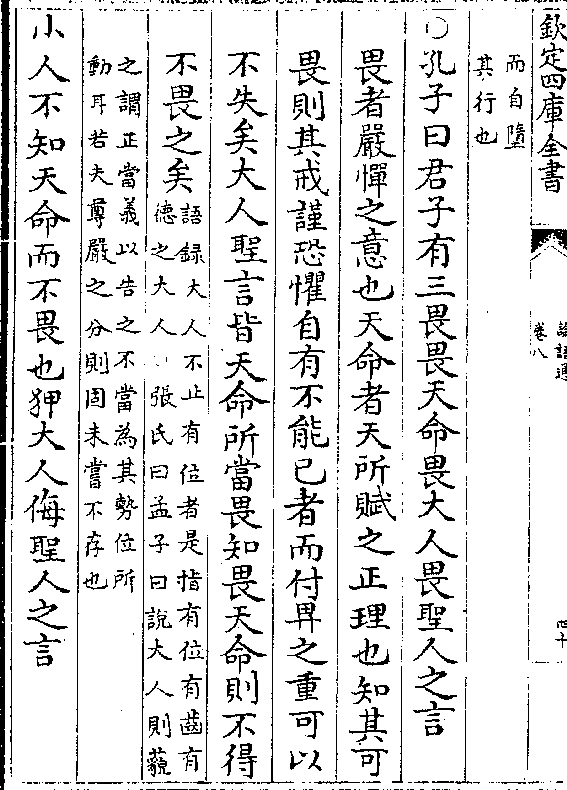 欽定四庫全書
論語通
卷八
四十
而自墮
其行也
○孔子曰君子有三畏畏天命畏大人畏聖人之言
畏者嚴憚之意也天命者天所賦之正理也知其可
畏則其戒謹恐懼自有不能已者而付畀之重可以
不失矣大人聖言皆天命所當畏知畏天命則不得
不畏之矣
語録大人不止有位者是指有位有齒有
德之大人○張氏曰孟子曰說大人則藐
之謂正當義以告之不當為其勢位所
動耳若夫尊嚴之分則固未嘗不存也
小人不知天命而不畏也狎大人侮聖人之言